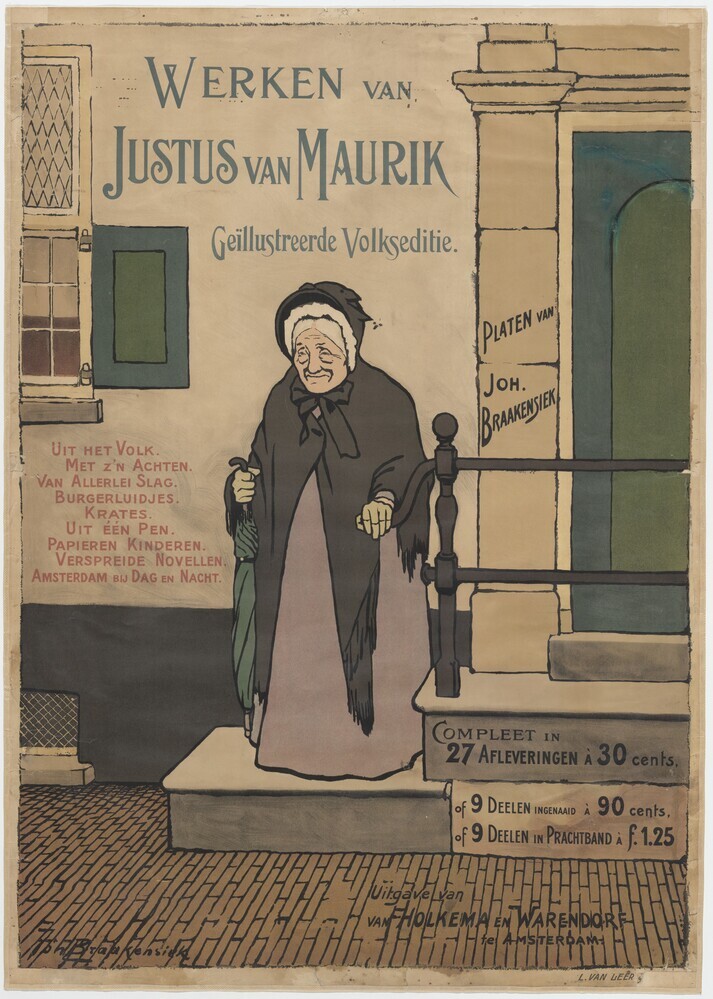 WERKEN VAN
JUSTUS VAN MAURIK
Geïllustreerde Volkseditie.
PLATEN VAN
JOH.
BRAAKENSIEK
UIT HET VOLK.
MET Z'N ACHTEN.
VAN ALLERLEI SLAG.
BURGERLUIDJES.
KRATES.
UIT ÉÉN PEN.
PAPIEREN KINDEREN.
VERSPREIDE NOVELLEN.
AMSTERDAM BIJ DAG EN NACHT.
COMPLEET IN
27 AFLEVERINGEN À 30 cents.
of 9 DEELEN INGENAAID à 90 cents,
of 9 DEELEN IN PRACHTBAND À f. 1.25
Uitgave van
VAN HOLKEMA EN WARENDORF
te AMSTERDAM.
Joh Braakensiek
L. VAN LEER